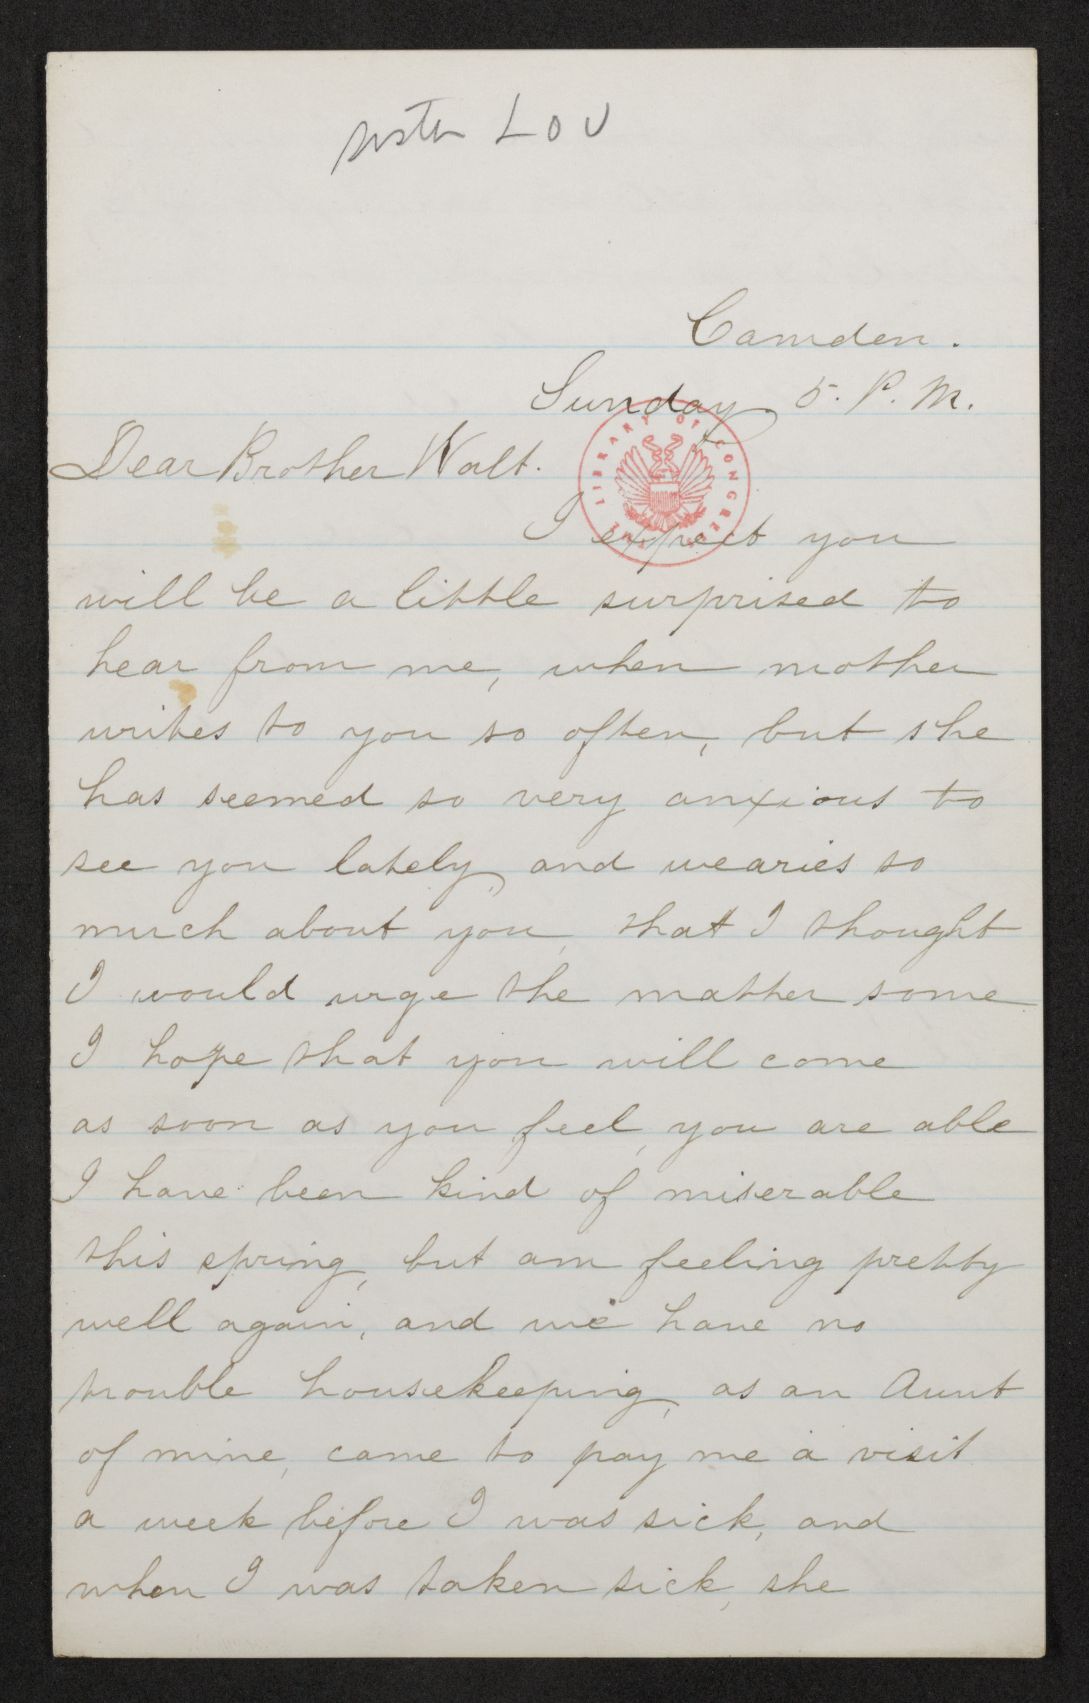 sister LOU
Camden.
Sunday 5. P. M.
Dear Brother Walt.
THE LIBRARY OF CONGRESS
I expect you
will be a little surprised to
hear from me, when mother
writes to you so often, but she
has seemed so very anxious to
see you lately, and wearies so
much about you, that I thought
I would urge the matter some
I hope that you will come
as soon as you feel, you are able
I have been kind of miserable
this spring, but am feeling pretty
well again, and we have no
trouble housekeeping, as an Aunt
of mine, came to pay me a visit
a week before I was sick, and
when I was taken sick, she